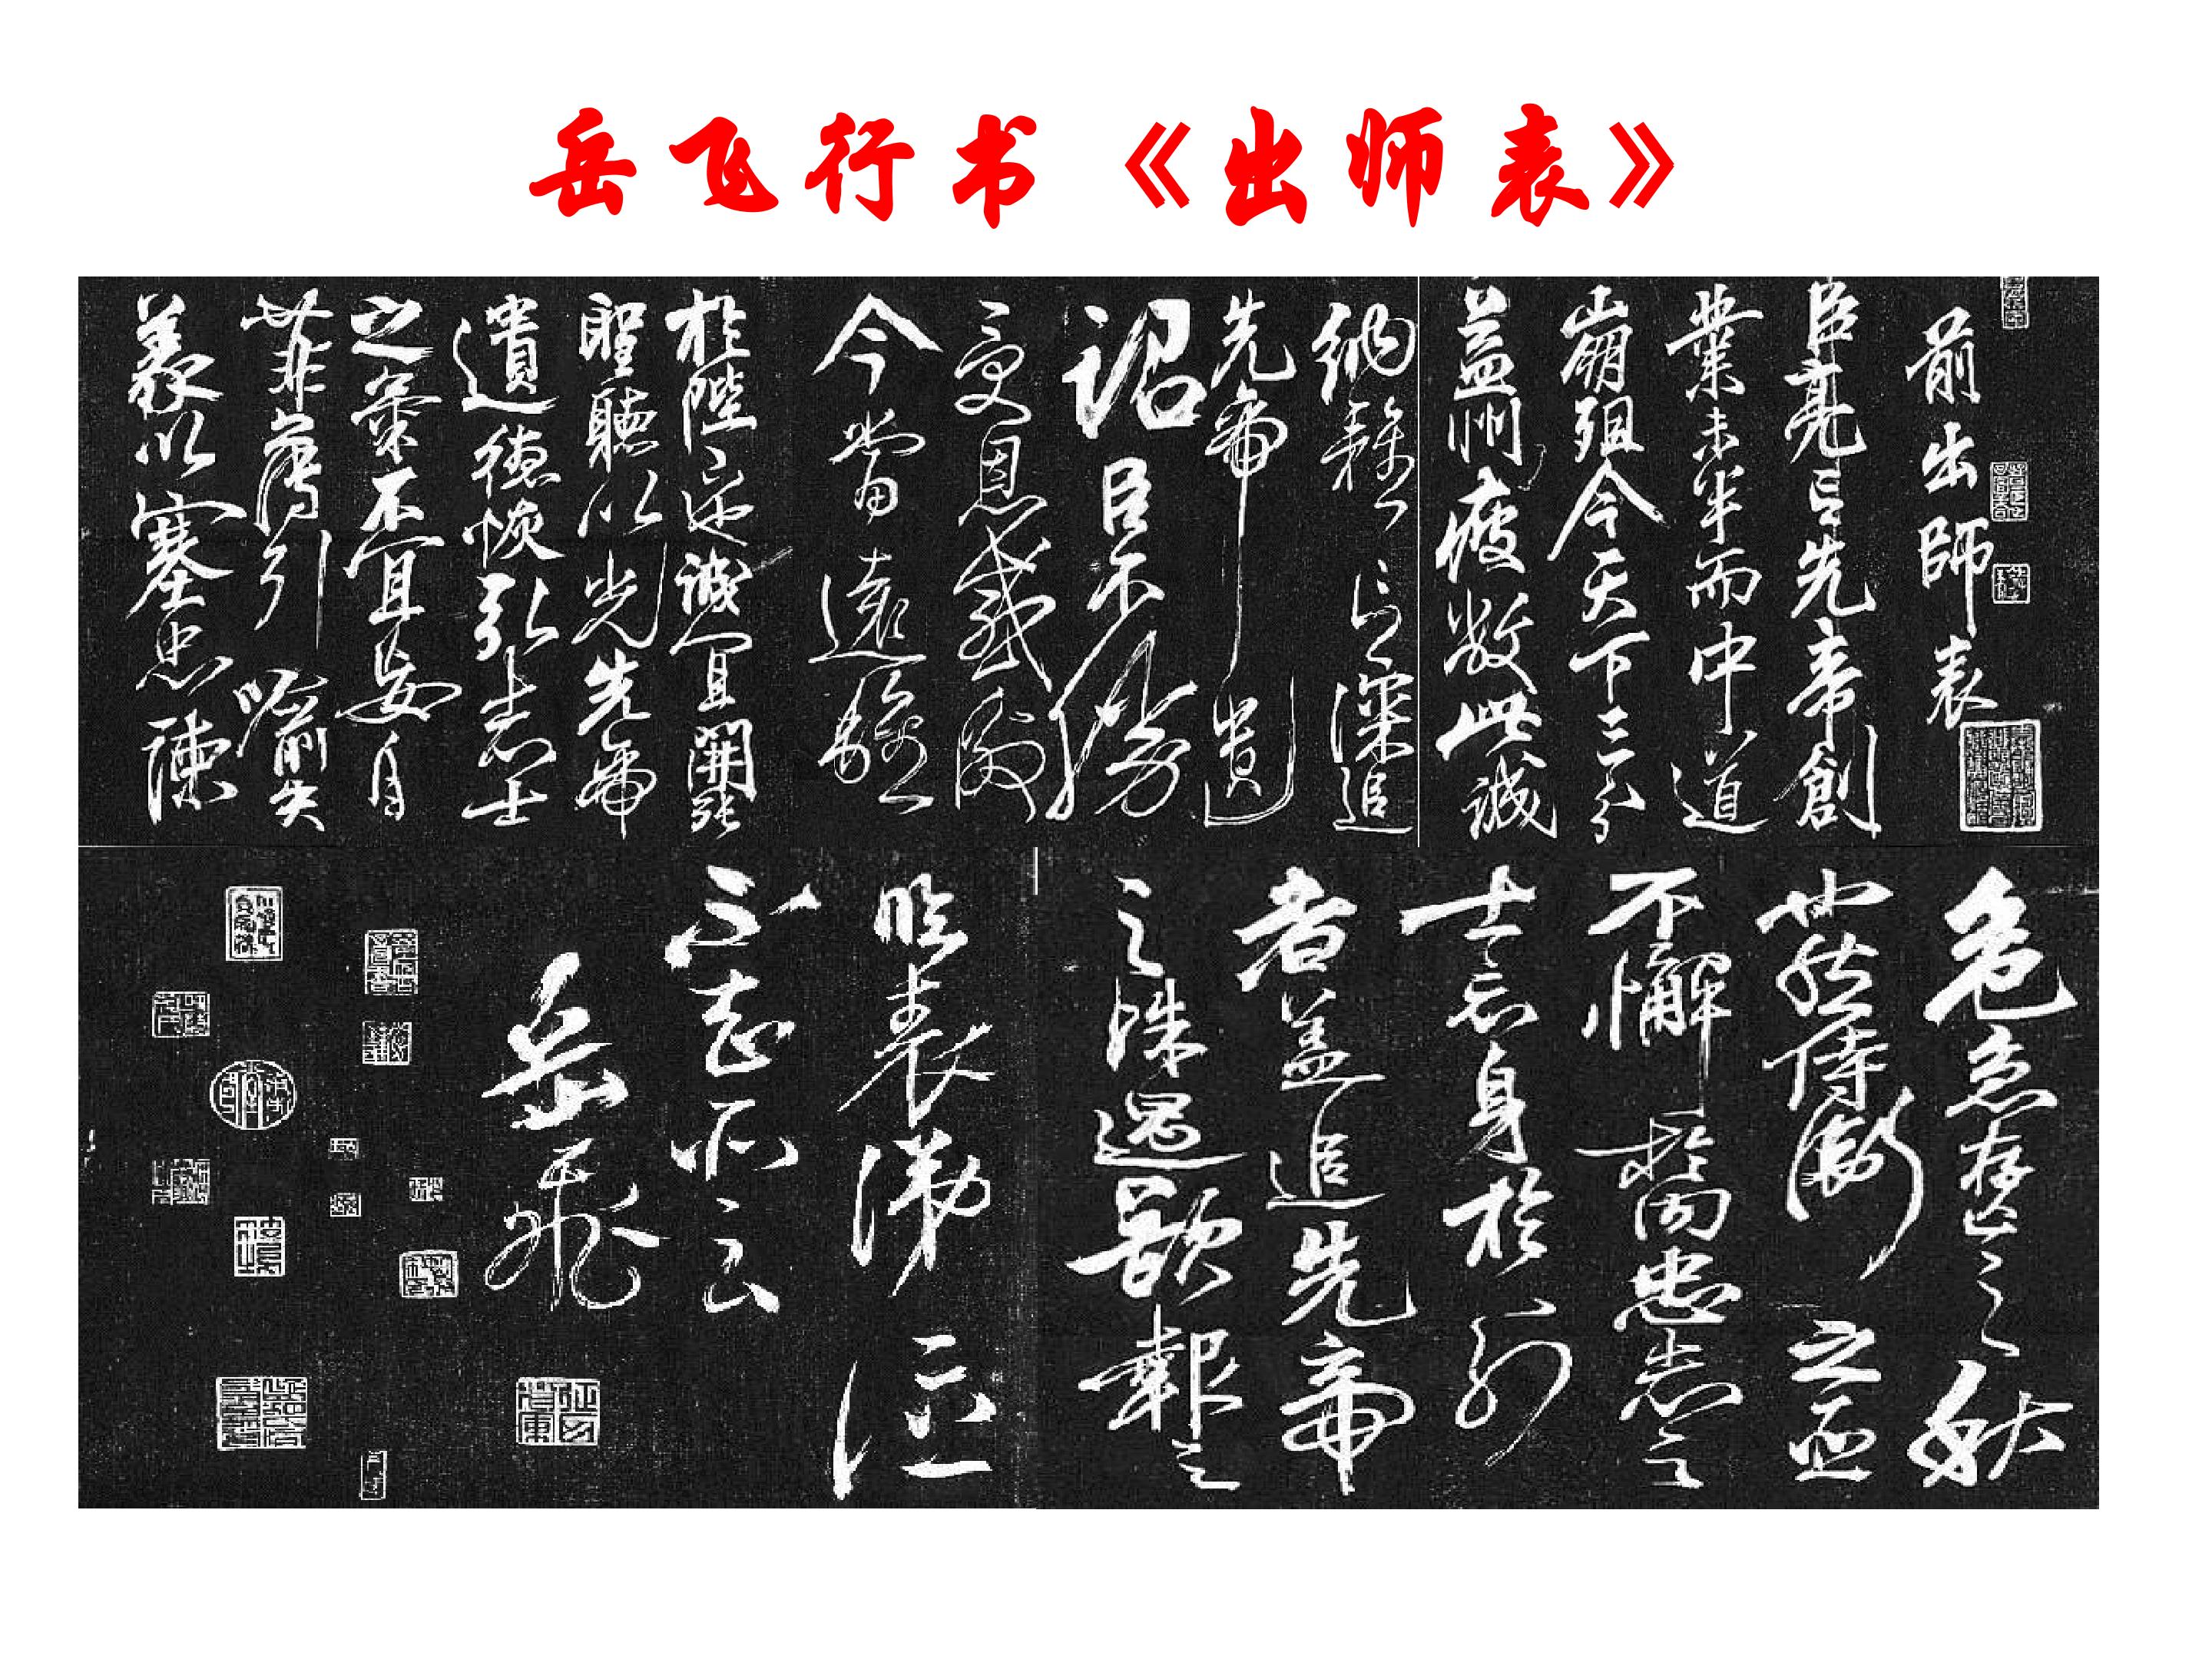 岳飞行书《出师表》
前出師表
臣亮言先帝創
業未半而中道
崩殂今天下三分
益州疲敝此誠
納雅言深追
先帝遺
詔臣不勝
受恩感激
今當遠離
於陛下也誠宜開張
聖聽以光先帝
遺德恢弘志士
之氣不宜妄自
菲薄引喻失
義以塞忠諫
危急存亡之秋
也然侍衛之臣
不懈於內忠志之
士忘身於外
者蓋追先帝
之殊遇欲報之
臨表涕泣
不知所云
岳飛